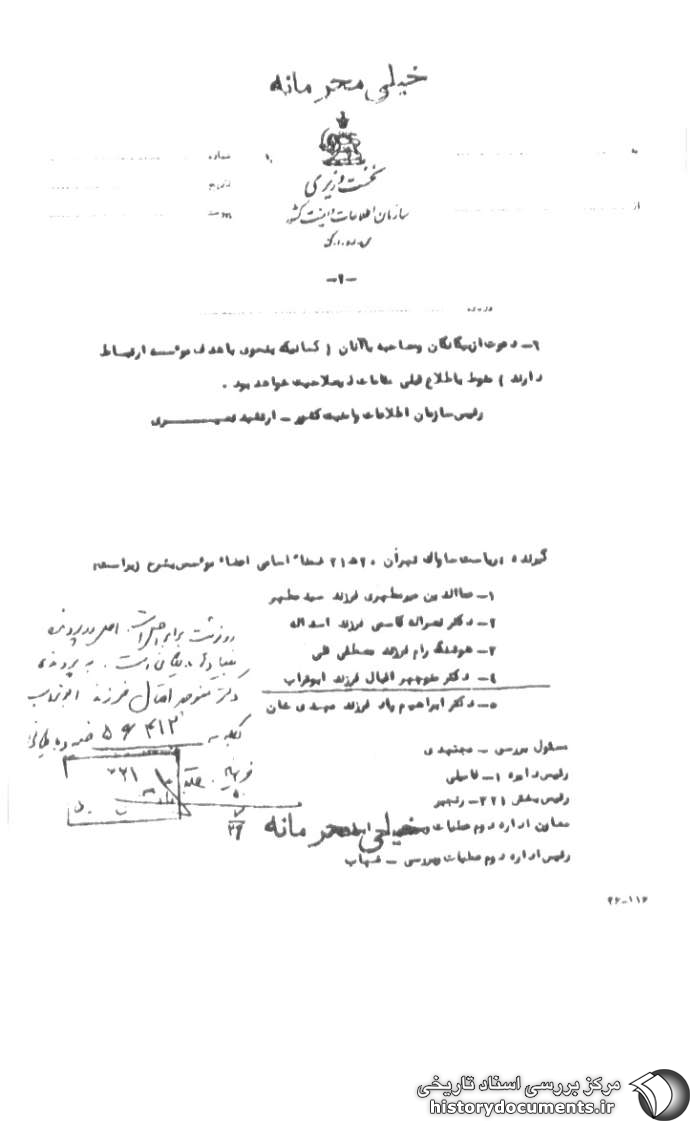 خیلی محرمانه
نخست وزیری
سازمان اطلاعات و امنیت کشور
به
شماره
تاریخ
از
-۲-
درباره
۶- دعوت از بیگانگان و مصاحبه با آنان ( کسانیکه بنحوی با هدف مؤسسه ارتباط
دارند ) منوط باطلاع قبلی مقامات ذیصلاحیت خواهد بود .
رئیس سازمان اطلاعات و امنیت کشور - ارتشبد نصیری
گیرنده : ریاست ساواک تهران ۲۰ ه ۲۱ ضمناً اسامی اعضاء مؤسس بشرح زیر است:
۱- ضیاالدین میرمطهری فرزند سید مطهر
۲- دکتر نصراله کاسمی فرزند اسداله
۳- هوشنگ رام فرزند مصطفی قلی
۴- دکتر منوچهر اقبال فرزند ابوتراب
۵- دکتر ابراهیم یاد فرزند مهدی خان
رونوشت برابر اصل است. اصل در پرونده
بایگانی است. به پرونده
دکتر منوچهر اقبال فرزند ابوتراب
بکلاسه ۵۶۴۱۲ ضمیمه و بایگانی
۳۲۱
مسئول بررسی - مجتهدی
رئیس دایره ۱- فاضلی
رئیس بخش ۳۲۱- رنجبر
معاون اداره دوم عملیات و
خیلی محرمانه
رئیس اداره دوم عملیات و بررسی - شهاب
۲۶-۱۱۶
مرکز بررسی اسناد تاریخی
historydocuments.ir